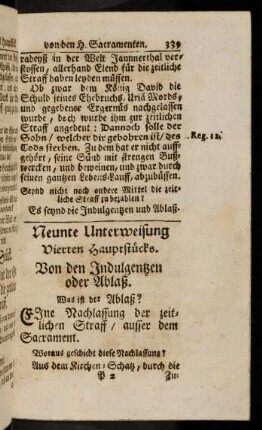 von den H. Sacramenten. 339
radeyß in der Welt Jammerthal ver-
stossen / allerhand Elend für die zeitliche
Straff haben leyden müssen.
Ob zwar dem König David die
Schuld seines Ehebruchs, Uriä Mords,
und gegebener Ergernuß nachgelassen
wurde, doch wurde ihm zur zeitlichen
Straff angedeut: Dannoch solle der
Sohn / welcher dir gebohren ist / des
Tods sterben. Zu dem hat er nicht auff-
gehört, seine Sünd mit strengen Buß-
wercken / und beweinen, und zwar durch
seinen gantzen Lebens-Lauff, abzubüssen.
Reg. 12.
Seynd nicht noch andere Mittel die zeit-
liche Straff zu bezahlen?
Es seynd die Indulgentzen und Ablaß.
Neunte Unterweisung
Vierten Hauptstücks.
Von den Indulgentzen
oder Ablaß.
Was ist der Ablaß?
EIne Nachlassung der zeit-
lichen Straff / ausser dem
Sacrament.
Woraus geschicht diese Nachlassung?
Aus dem Kirchen-Schatz, durch die
P 2 Zu-